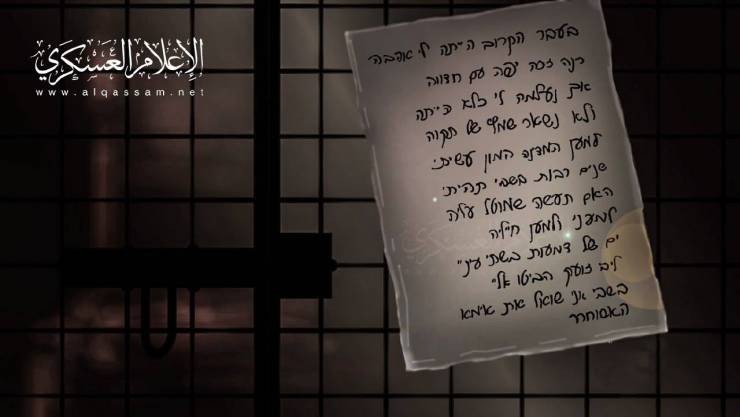 الإعلام العسكري
www.alqassam.net
בעבר הקרוב הייתה לי אהבה
רכה יפה עם חדווה
אך נעלמה לי כלא הייתה
ולא נשאר שמץ של תקוה
למען המדינה המון עשיתי
שנים רבות בשבי תהיתי
האם תעשה שמוטל עליה
למעני ולמען חייליה
ים של דמעות בשתי עיני
ליבי זועק הביטו אלי
בשבי אני שואל את אימא